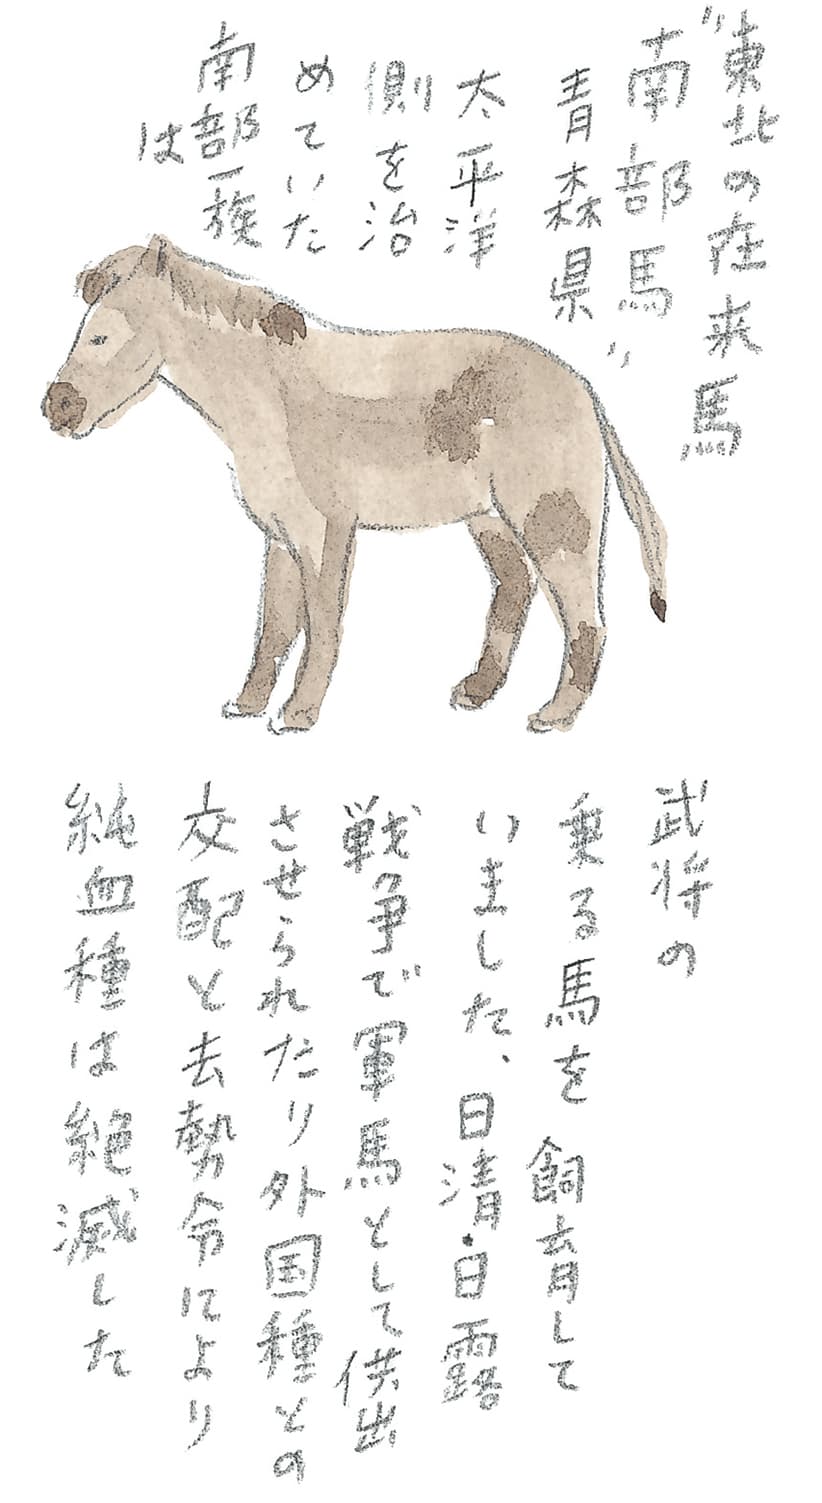 〝東北の在来馬
南部馬〟
青森県
太平洋
側を治
めていた
南部一族
は
武将の
乗る馬を飼育して
いました、日清・日露
戦争で軍馬として供出
させられたり外国種との
交配と去勢令により
純血種は絶滅した